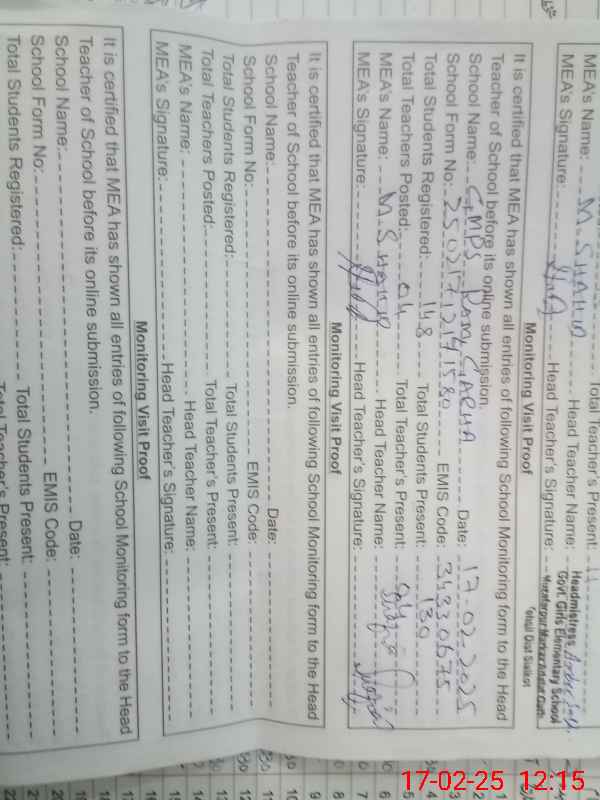 Total Teacher's Present:
MEA's Name: M. SHAHID Head Teacher Name:
MEA's Signature: Head Teacher's Signature:
Headmistress
Govt. Girls Elementary School
Muzaffarpur Markaz Adda
Tehsil Distt Sialkot
Monitoring Visit Proof
It is certified that MEA has shown all entries of following School Monitoring form to the Head
Teacher of School before its online submission.
School Name: GMPS RAM GARHA Date: 17-02-2025
School Form No: EMIS Code: 34330675
Total Students Registered: 148 Total Students Present: 130
Total Teachers Posted: 04 Total Teacher's Present: 04
MEA's Name: M. SHAHID Head Teacher Name:
MEA's Signature: Head Teacher's Signature:
Monitoring Visit Proof
It is certified that MEA has shown all entries of following School Monitoring form to the Head
Teacher of School before its online submission.
School Name: Date:
School Form No: EMIS Code:
Total Students Registered: Total Students Present:
Total Teachers Posted: Total Teacher's Present:
MEA's Name: Head Teacher Name:
MEA's Signature: Head Teacher's Signature:
Monitoring Visit Proof
It is certified that MEA has shown all entries of following School Monitoring form to the Head
Teacher of School before its online submission.
School Name: Date:
School Form No: EMIS Code:
Total Students Registered: Total Students Present:
Total Teacher's Present:
17-02-25 12:15